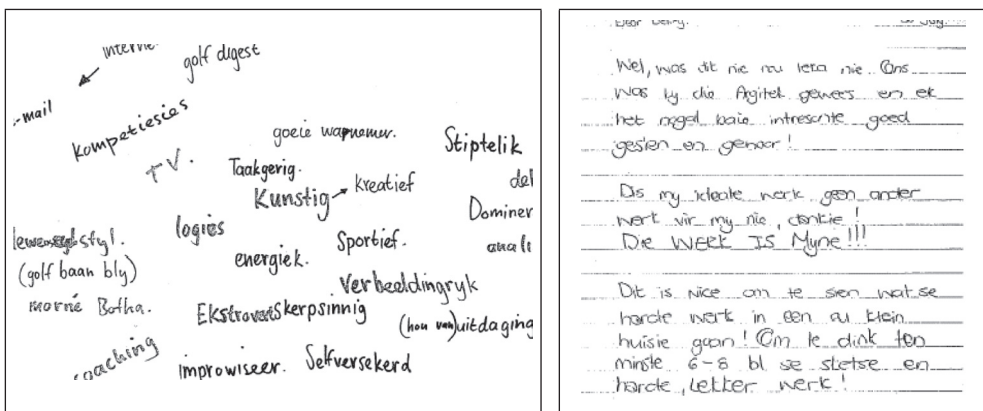 interne
golf digest
-mail
kompetiesies
T.V.
goeie waarnemer.
Stiptelik
Taakgerig.
Kunstig → kreatief
del
Dominer
logies
Sportief.
anali
energiek.
lewenstyl.
(golf baan bly)
Verbeeldingryk
morné Botha.
Ekstrovert
skerpsinnig
(hou van) uitdaging
coaching
improwiseer.
Selfversekerd
Wel, was dit nie nou leka nie Ons
was by die Argitek gewees en ek
het nogal baie intresante goed
gesien en gehoor!
Dis my ideale werk geen ander
werk vir my nie, dankie!
Die WERK IS Myne!!!
Dit is nice om te sien watse
harde werk in een ou klein
huisie gaan! Om te dink ten
minste 6-8 bl se sketse en
harde, lekker werk!